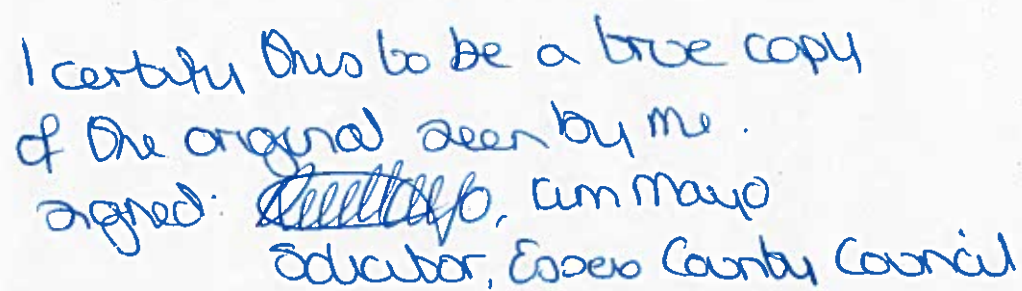 I certify this to be a true copy
of the original seen by me.
signed: , Kim Mayo
Solicitor, Essex County Council